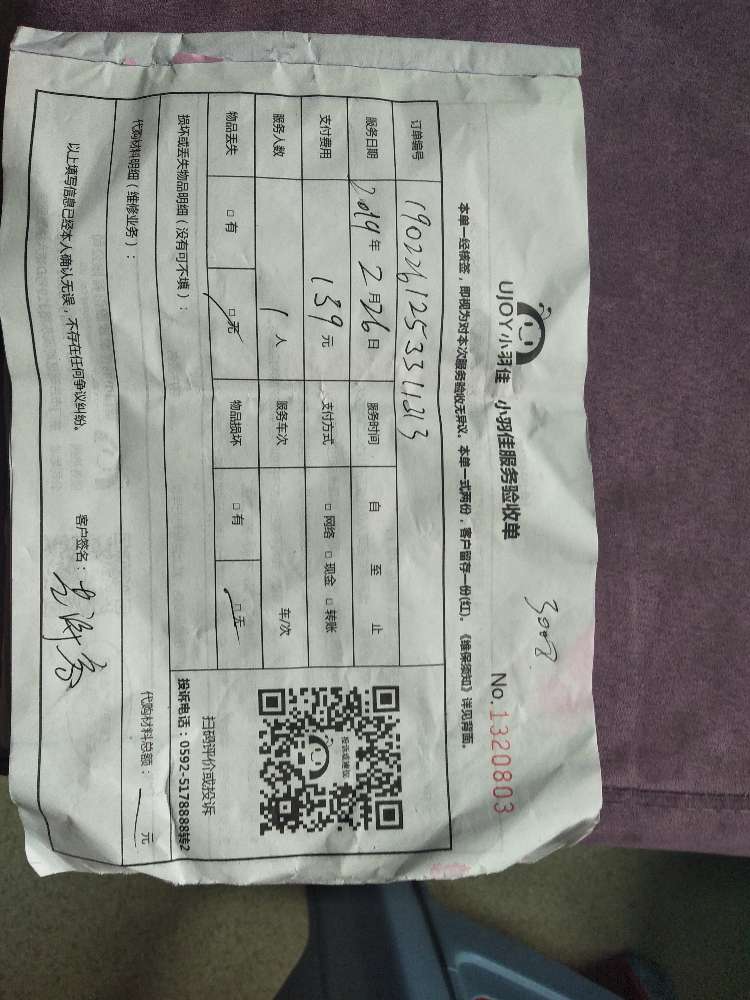 3008
UJOY小羽佳 小羽佳服务验收单 No.1320803
本单一经核签，即视为对本次服务验收无异议。本单一式两份，客户留存一份(红)。《维保须知》详见背面。
订单编号 190226125331213
服务日期 2019年2月26日 服务时间 自 至 止
支付费用 139元 支付方式 □网络 □现金 □转账
服务人数 1人 服务车次 车/次
物品丢失 □有 □无 物品损坏 □有 □无
损坏或丢失物品明细（没有可不填）：
投诉或建议
扫码评价或投诉
投诉电话：0592-5178888转2
代购材料明细（维修业务）： 代购材料总额： 元
以上填写信息已经本人确认无误，不存在任何争议纠纷。 客户签名：